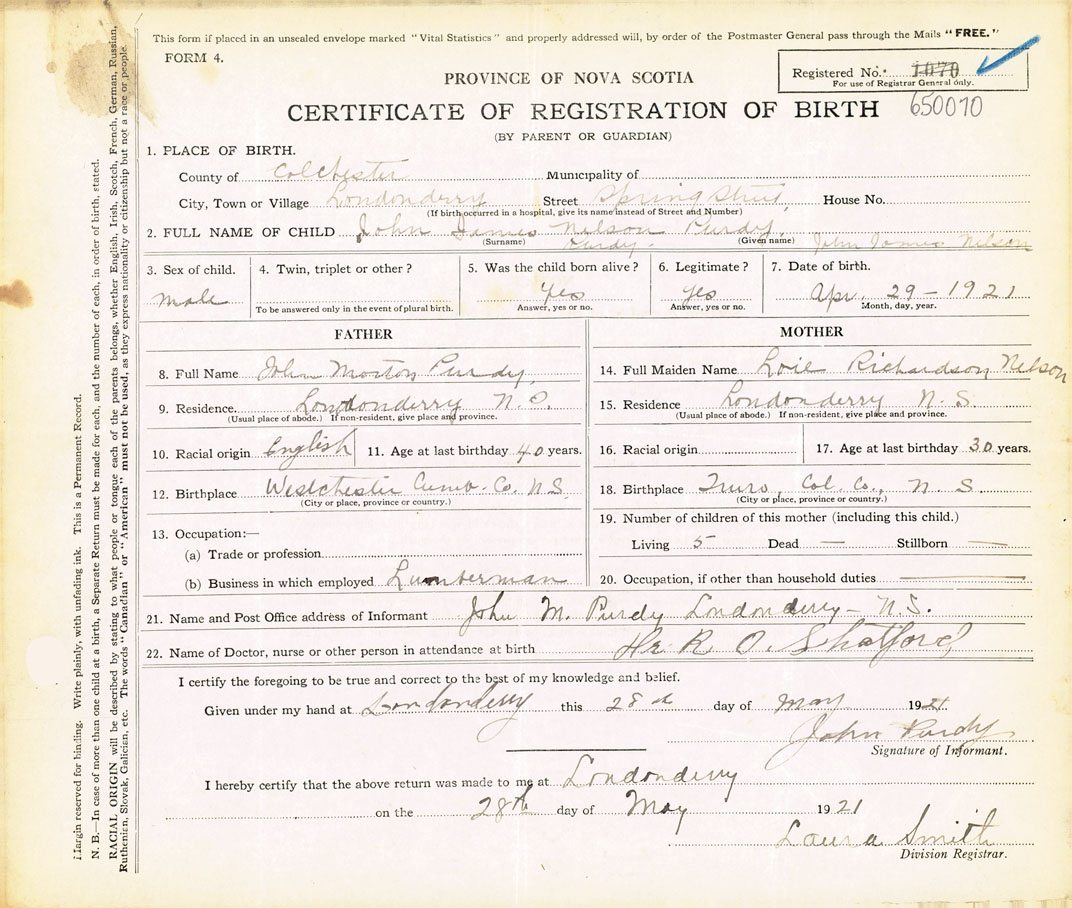 This form if placed in an unsealed envelope marked "Vital Statistics" and properly addressed will, by order of the Postmaster General pass through the Mails "FREE."
FORM 4.
Registered No. 1070
For use of Registrar General only.
650070
PROVINCE OF NOVA SCOTIA
CERTIFICATE OF REGISTRATION OF BIRTH
(BY PARENT OR GUARDIAN)
1. PLACE OF BIRTH.
County of Colchester Municipality of
City, Town or Village Londonderry Street Spring Street, House No.
(If birth occurred in a hospital, give its name instead of Street and Number)
2. FULL NAME OF CHILD John James Nelson Purdy.
(Surname) Purdy. (Given name) John James Nelson
3. Sex of child. 4. Twin, triplet or other? 5. Was the child born alive? 6. Legitimate? 7. Date of birth.
male yes yes Apr. 29-1921
To be answered only in the event of plural birth. Answer, yes or no. Answer, yes or no. Month, day, year.
FATHER
8. Full Name John Morton Purdy,
9. Residence. Londonderry N.S.
(Usual place of abode.) If non-resident, give place and province.
10. Racial origin English 11. Age at last birthday 40 years.
12. Birthplace Westchester Cumb. Co. N.S.
(City or place, province or country.)
13. Occupation:—
(a) Trade or profession
(b) Business in which employed Lumberman
MOTHER
14. Full Maiden Name Richardson Nelson
15. Residence Londonderry N.S.
(Usual place of abode.) If non-resident, give place and province.
16. Racial origin 17. Age at last birthday 30 years.
18. Birthplace Truro, Col. Co., N.S.
(City or place, province or country.)
19. Number of children of this mother (including this child.)
Living 5 Dead — Stillborn —
20. Occupation, if other than household duties —
21. Name and Post Office address of Informant John M. Purdy Londonderry- N.S.
22. Name of Doctor, nurse or other person in attendance at birth R O. Shatford
I certify the foregoing to be true and correct to the best of my knowledge and belief.
Given under my hand at Londonderry this 28th day of May 1921
John Purdy
Signature of Informant.
I hereby certify that the above return was made to me at Londonderry
on the 28th day of May 1921
Laura Smith
Division Registrar.
Margin reserved for binding. Write plainly, with unfading ink. This is a Permanent Record.
N. B.—In case of more than one child at a birth, a Separate Return must be made for each, and the number of each, in order of birth, stated.
RACIAL ORIGIN will be described by stating to what people or tongue each of the parents belongs, whether English, Irish, Scotch, French, German, Russian,
Ruthenien, Slovak, Galician, etc. The words "Canadian" or "American" must not be used, as they express nationality or citizenship but not a race or people.